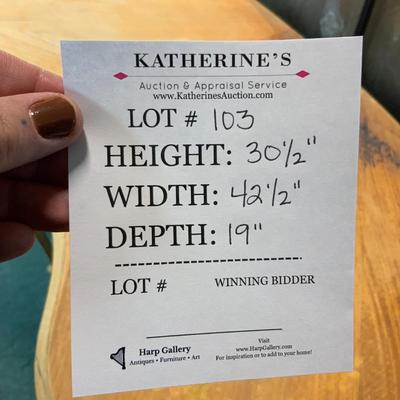 KATHERINE'S
Auction & Appraisal Service
www.KatherinesAuction.com
LOT # 103
HEIGHT: 30 1/2"
WIDTH: 42 1/2"
DEPTH: 19"
LOT # WINNING BIDDER
Harp Gallery
Antiques • Furniture • Art
Visit
www.HarpGallery.com
For inspiration or to add to your home!